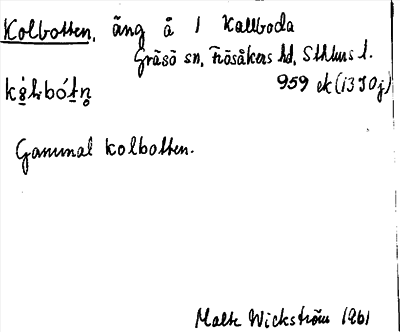 Kolbotten, äng å 1 Kallboda
Gräsö sn, Frösåkers hd, Sthlms l.
959 ek (13 I 0 j)
Gammal kolbotten.
Malte Wickström 1961